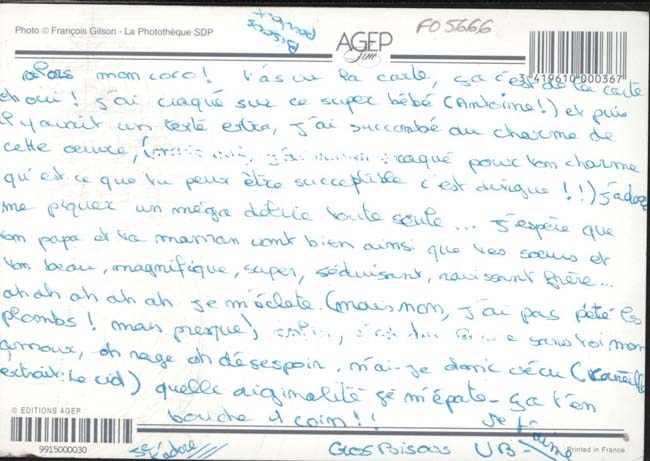 Photo © François Gilson - La Photothèque SDP
AGEP
FO 5666
Bisous
3 419610 000367
alors mon coco! t'as vu la carte, ça c'est de la carte
eh oui! j'ai craqué sur ce super bébé (Antoine!) et puis
il y avait un texte extra, j'ai succombé au charme de
cette œuvre, craqué pour ton charme
qu'est ce que tu peux être succeptible c'est dingue!!) j'adore
me piquer un méga délire toute seule... j'espère que
ton papa et ta maman vont bien ainsi que tes sœurs et
ton beau, magnifique, super, séduisant, ravissant frère...
ah ah ah ah ah je m'éclate. (mais non, j'ai pas pété les
plombs! mais presque) sans toi mon
amour, oh rage oh désespoir, n'ai-je donc vécu (
extrait: Le cid) quelle originalité je m'épate - ça t'en
bouche 1 coin!!
je t'aime
je t'adore
Gros Bisous
© EDITIONS AGEP
9915000030
Printed in France